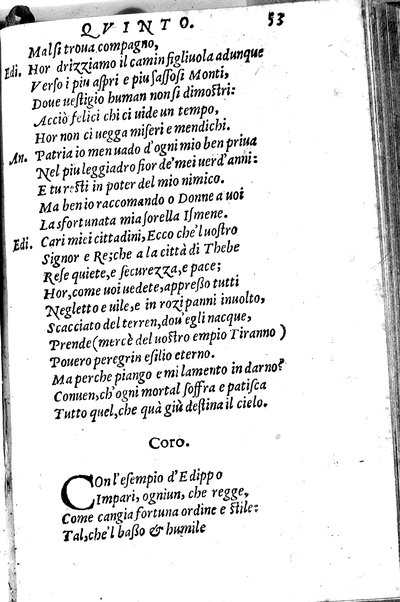 QVINTO. 53
Mal si troua compagno,
Edi. Hor drizziamo il camin figliuola adunque
Verso i piu aspri e piu sassosi Monti,
Doue uestigio human non si dimostri:
Acciò felici chi ci uide un tempo,
Hor non ci uegga miseri e mendichi.
An. Patria io men uado d'ogni mio ben priua
Nel piu leggiadro fior de' mei uerd'anni:
E tu resti in poter del mio nimico.
Ma ben io raccomando o Donne a uoi
La sfortunata mia sorella Ismene.
Edi. Cari miei cittadini, Ecco che'l uostro
Signor e Re; che a la città di Thebe
Rese quiete, e securezza, e pace;
Hor, come uoi uedete, appresso tutti
Negletto e uile, e in rozi panni inuolto,
Scacciato del terren, dou'egli nacque,
Prende (mercè del uostro empio Tiranno)
Pouero peregrin esilio eterno.
Ma perche piango e mi lamento in darno?
Conuen, ch'ogni mortal soffra e patisca
Tutto quel, che quà giù destina il cielo.
Coro.
Con l'esempio d'Edippo
Impari, ogniun, che regge,
Come cangia fortuna ordine e stile:
Tal, che'l basso & humile